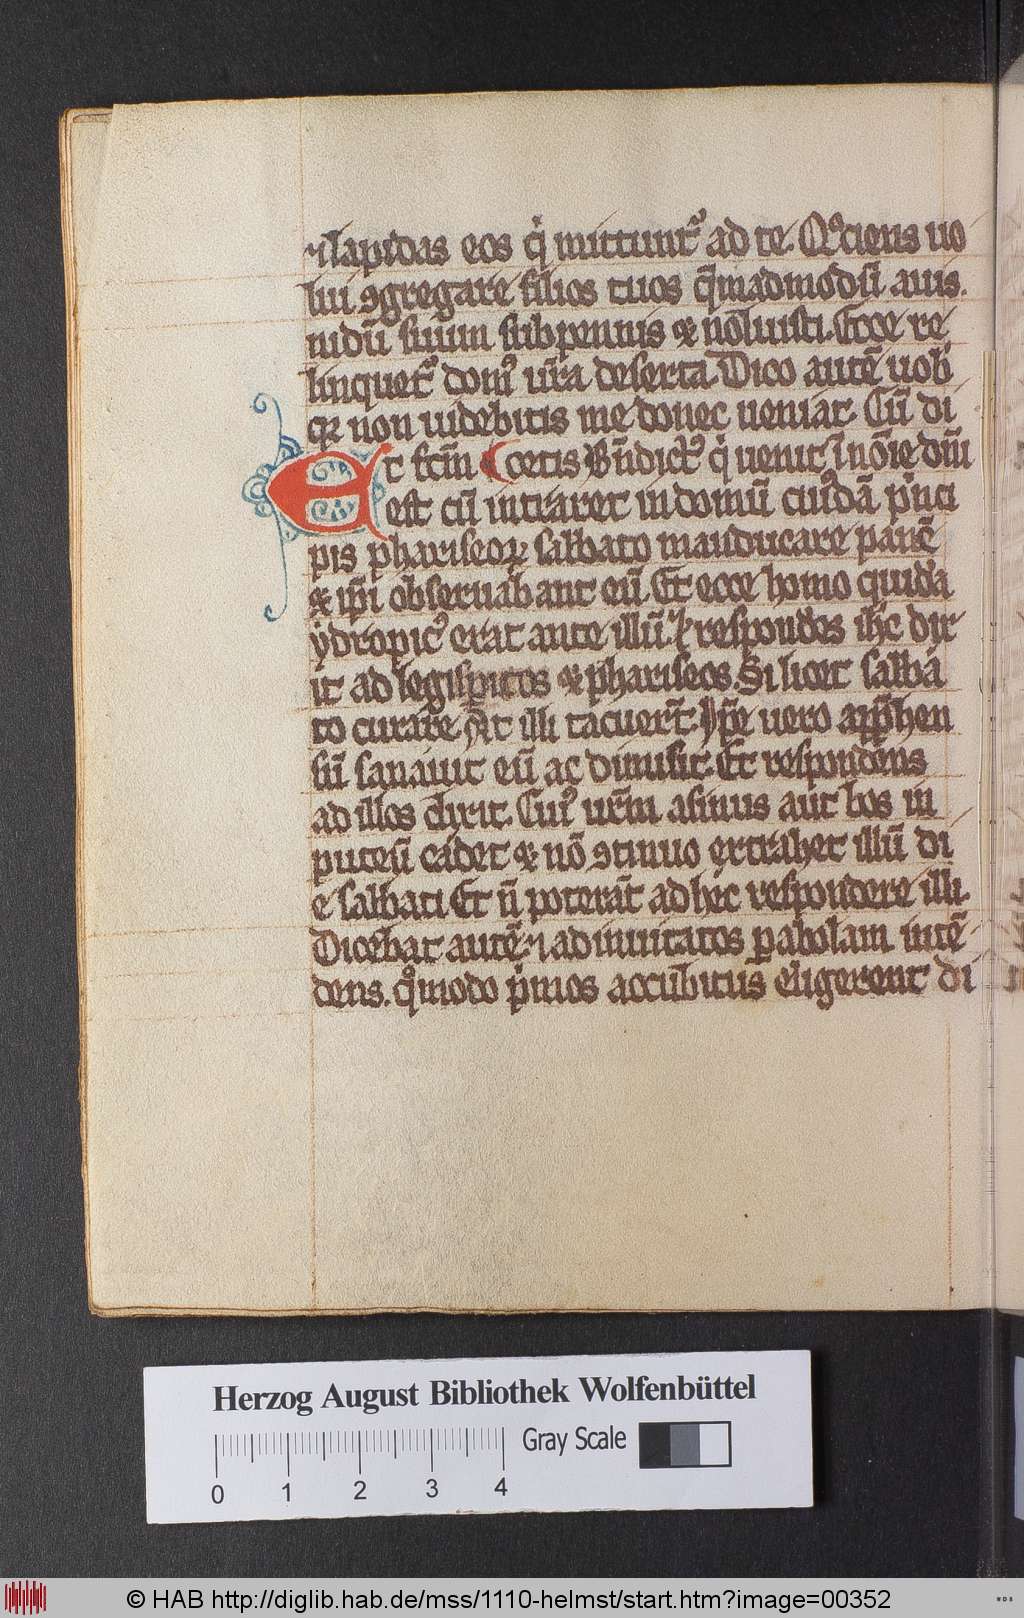 ⁊ lapidas eos q̇ mittunt᷒ ad te. Qͦciens uo
lui ꝯgregare filios tuos q̄madmodū auis.
nidū suum sub pennis ⁊ nōluisti. Ecce re
linquet᷒ domꝰ ur̄a deserta. Dico autē uob̄
qꝛ non uidebitis me donec ueniat. Cū di
Et fc̄m cetis Bn̄dictꝰ q̇ uenit ī nōie dn̄i
est cū intraret in domū cuiꝰdā pͥnci
pis phariseoꝝ sabbato manducare panē
⁊ ip̄i obseruabant eū. Et ecce homo quidā
ydropicꝰ erat ante illū. ⁊ respondēs ihc̄ dix
it ad legisꝑitos ⁊ phariseos. Si licet sabba
to curare. At illi tacuerт̄. Ip̄e uero app̄hen
sū sanauit eū ac dimisit. Et respondens
ad illos dixit. Cuiꝰ ur̄m asinus aut bos in
puteū cadet ⁊ nō ꝯtinuo extrahet illū di
e sabbati Et n̄ poterāt ad hec respondere illi.
Dicebat autē ⁊ ad inuitatos ꝑabolam intē
dens. qͦmodo pͥmos accubitus eligerent di
Herzog August Bibliothek Wolfenbüttel
Gray Scale
0 1 2 3 4
© HAB http://diglib.hab.de/mss/1110-helmst/start.htm?image=00352